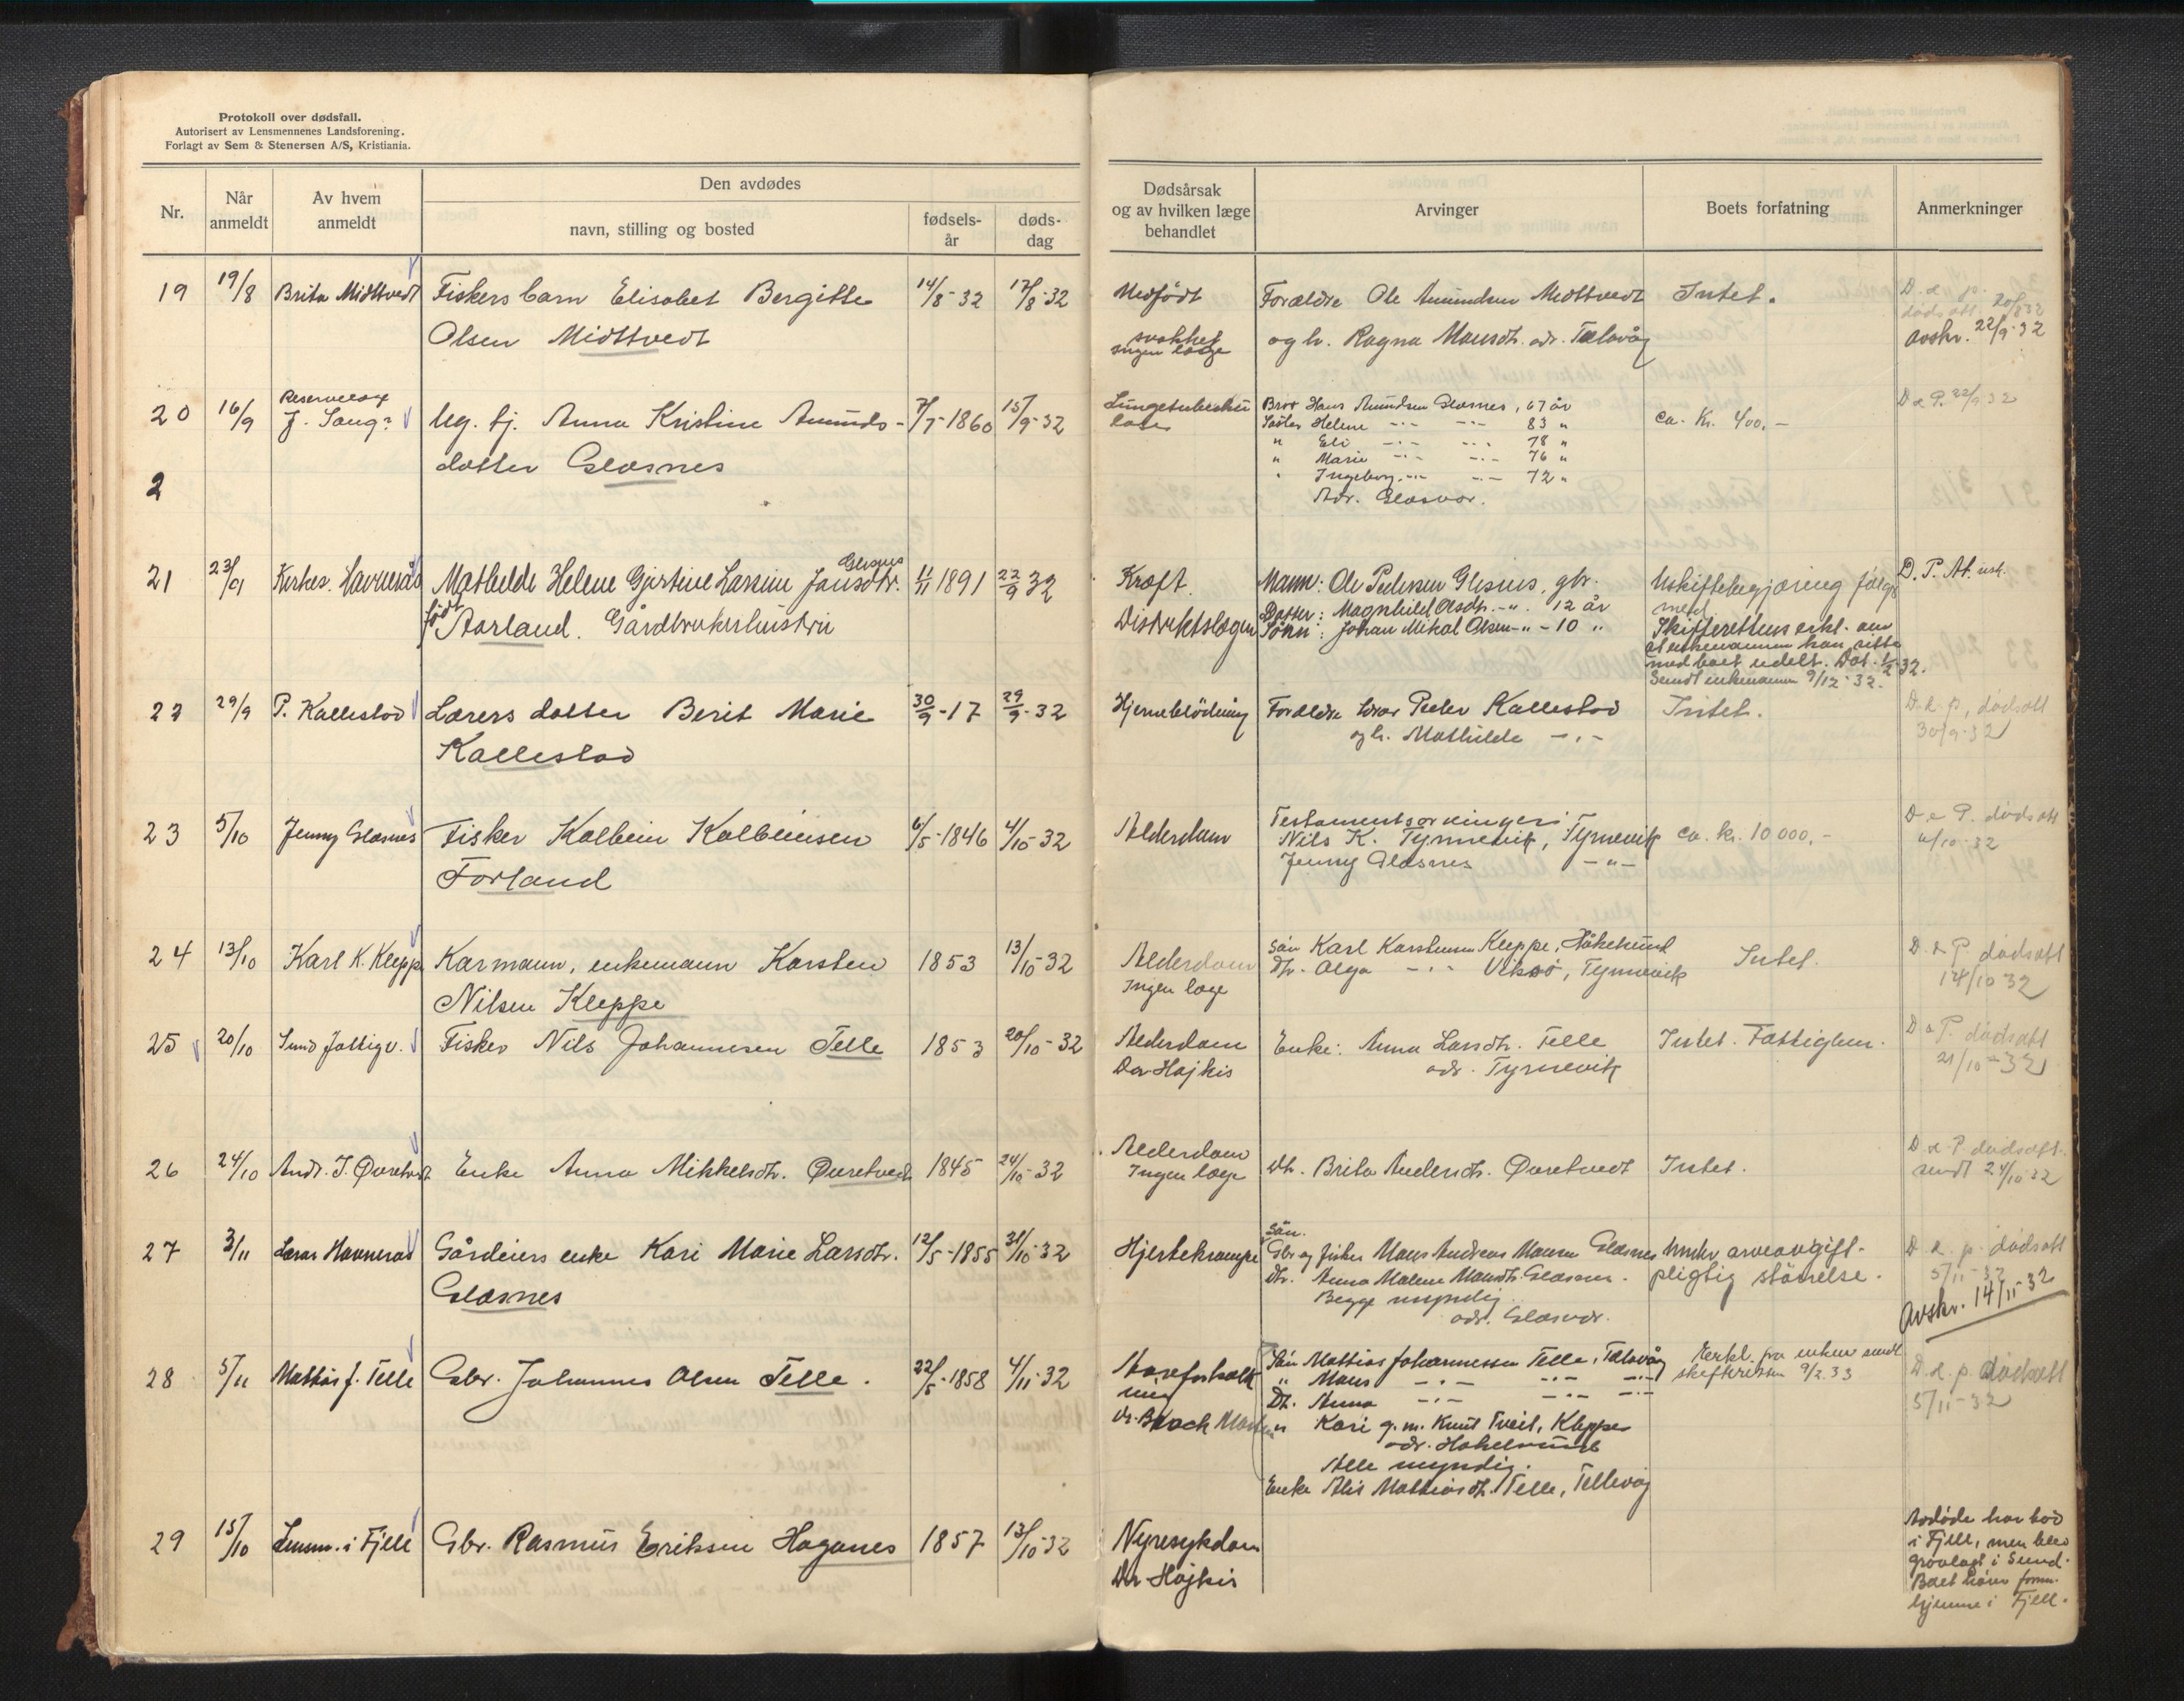 Protokoll over dødsfall.
Autorisert av Lensmennenes Landsforening.
Forlagt av Sem & Stenersen A/S, Kristiania.
Nr.
Når anmeldt
Av hvem anmeldt
Den avdødes
navn, stilling og bosted
fødsels-år
døds-dag
Dødsårsak og av hvilken læge behandlet
Arvinger
Boets forfatning
Anmerkninger
19 19/8 Brita Midttvedt Fiskers barn Elisabet Bergitte 14/8-32 17/8-32 Medfödt Forældre Ole Amundsen Midttvedt Intet.
Olsen Midttvedt svakhet ingen læge og h. Ragna Mansdtr. adr. Telavåg avskr. 22/9-32
20 16/9 Reservelæge J. Ug. pj. Anna Kristine Amunds- 7/7-1860 15/9-32 Lungetuberku Bror Hans Amundsen Glæsnes, 67 år ca. Kr. 400.- D e P. 22/9 32
datter Glæsnes lose Söster Helene -"- -"- 83 "
2 " Eli -"- -"- 78 "
" Marie -"- -"- 76 "
" Ingeborg -"- -"- 72 "
Adr. Glæsvær.
21 23/9 Kirkes. Havnerås Mathilde Helene Gjertine Larsine Jansdtr. Glesnes 11/11 1891 22/9 32 Kræft. Mann: Ole Pedersen Glesnes, gbr. Uskiftebegjæring følger D. P. At. usk.
född Aarland. Gårdbrukerhustru Distriktslægen Datter: Magnhild Olsdtr. -"- 12 år med
Sönn: Johan Mikal Olsen -"- 10 " Skifterettens erkl. om
at enkemannen kan sitte
med boet udelt. Dat. 1/12 32.
Sendt enkemann 9/12-32.
22 29/9 P. Kallestad Lærers datter Berit Marie 30/9-17 29/9-32 Hjerneblödning Forældre lærer Peder Kallestad Intet. D. e. p. dødsatt
Kallestad og h. Mathilde -"- 30/9-32
23 5/10 Jenny Glæsnes Fisker Kolbein Kolbeinsen 6/5-1846 4/10-32 Alderdom Testamentsarvinger: ca. kr. 10 000.- D e P. dødsatt
Forland Nils K. Tyrnevik, Tyrnevik 6/10-32
Jenny Glæsnes -"-
24 13/10 Karl K. Klepp Kårmann, enkemann Karsten 1853 13/10-32 Alderdom Sön Karl Karstensen Kleppe, Håkesund Intet. D. e P. dødsatt
Nilsen Kleppe Ingen læge Dtr. Olga -"- Viksö, Tyrnevik 14/10 32
25 20/10 Sund fattigv. Fisker Nils Johannesen Telle 1853 20/10-32 Alderdom Enke: Anna Larsdtr. Telle Intet. Fattiglem. D e P. dødsatt
Dr Højkis adr. Tyrnevik 21/10-32
26 24/10 Andr. J. Øvretvedt Enke Anna Mikkelsdtr. Øvretvedt 1845 24/10-32 Alderdom Dtr. Brita Andersdtr. Øvretvedt Intet. D. e P dødsatt.
Ingen læge sendt 24/10-32
27 3/11 Lærer Havnerås Gårdeiers enke Kari Marie Larsdtr. 12/5-1855 31/10-32 Hjertekrampe Sön. Gbr og fisker Mans Andreas Mansen Glæsnes Under arveavgift- D e. p. dødsatt
Glæsnes Dtr. Anna Malene Mansdtr. Glæsnes. pligtig störrelse. 5/11-32
Begge myndig Avskr. 14/11-32
adr. Glæsvær.
28 5/11 Mathias J. Telle Gbr. Johannes Olsen Telle. 22/5-1858 4/11-32 Aareforkalk Sön Mathias Johannessen Telle, Telavåg Kerkl. fra enken sendt D. e. p. dødsatt
ning " Mans -"- -"- -"- skifteretten 9/2.33 5/11-32
Dtr. Anna -"- -"- -"-
" Kari g. m. Knut Tveit, Kleppe
adr. Hakelsund
Alle myndig.
Enke Alis Mathiasdtr. Telle, Tellevåg
29 15/10 Lensm. i Fjell Gbr. Rasmus Eriksen Haganes 1857 13/10-32 Nyresykdom Avdøde har bod
Dr Højkis i Fjell, men blev
gravlagt i Sund.
Boet hører
hjemme i Fjell.